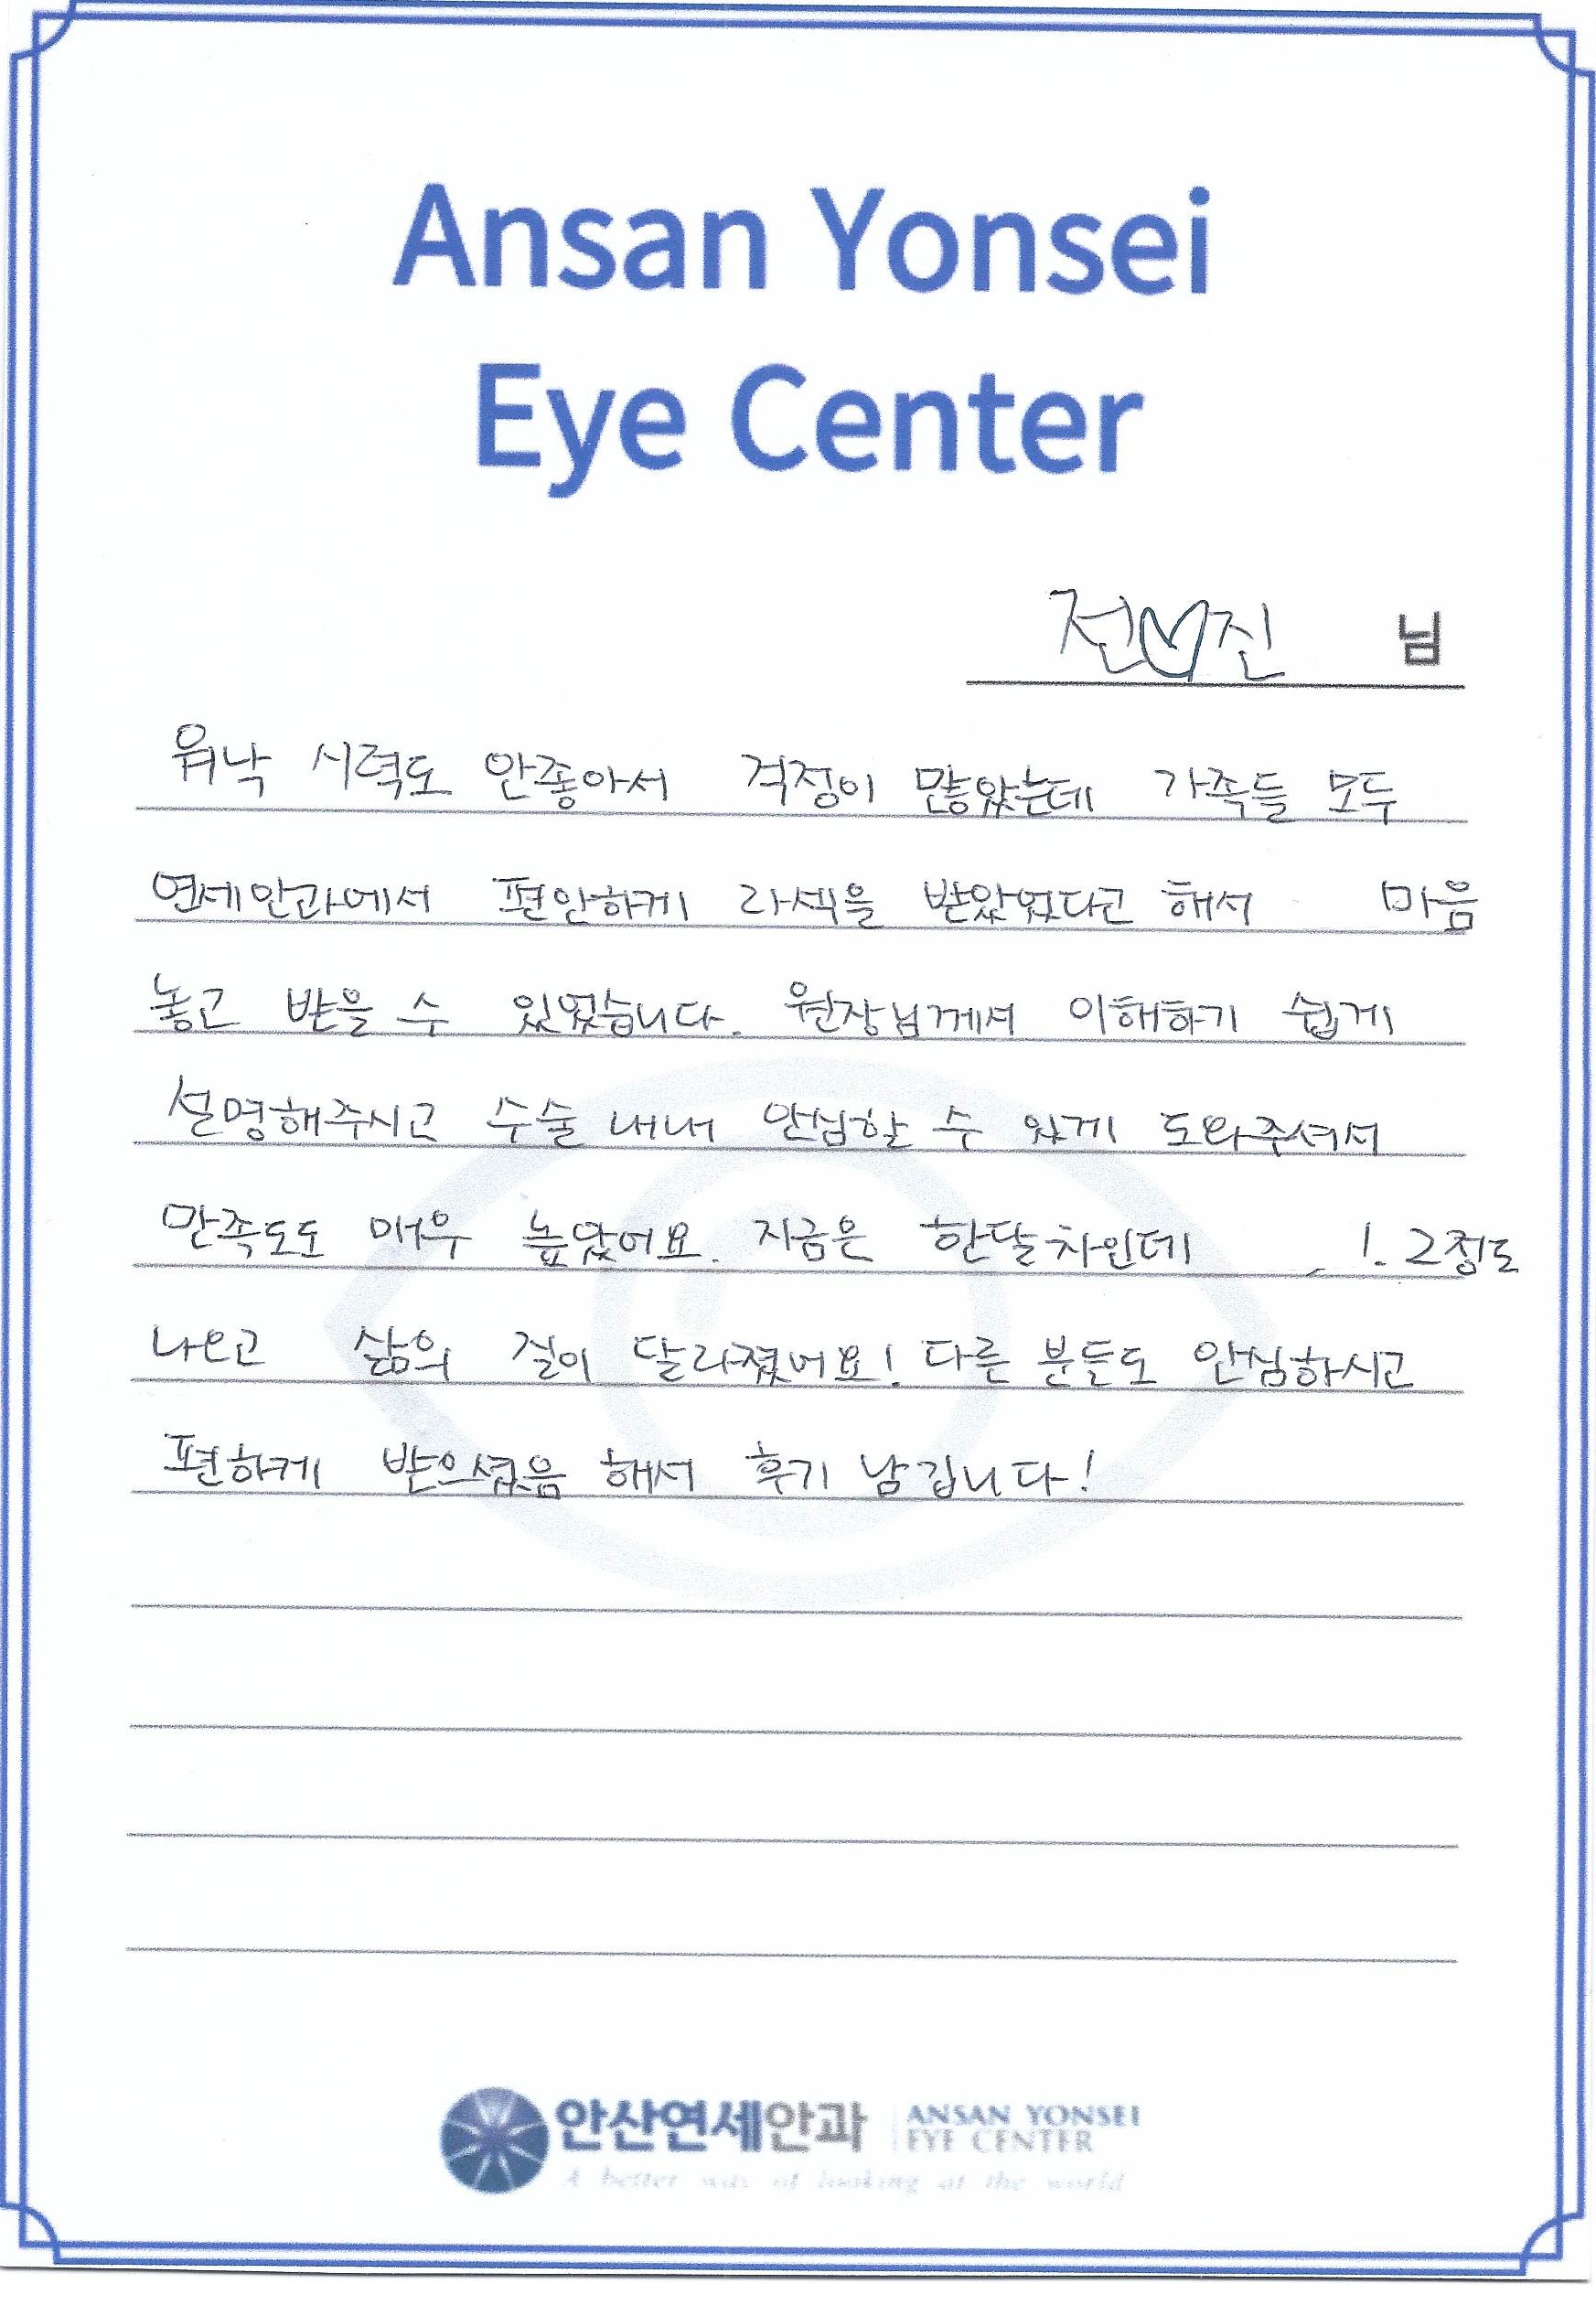 Ansan Yonsei
Eye Center
전♡진 님
워낙 시력도 안좋아서 걱정이 많았는데 가족들 모두
연세안과에서 편안하게 라섹을 받았었다고 해서 마음
놓고 받을 수 있었습니다. 원장님께서 이해하기 쉽게
설명해주시고 수술 내내 안심할 수 있게 도와주셔서
만족도도 매우 높았어요. 지금은 한달차인데 1.2정도
나오고 삶의 질이 달라졌어요! 다른 분들도 안심하시고
편하게 받으셨음 해서 후기 남깁니다!
안산연세안과 ANSAN YONSEI
EYE CENTER
A better way of looking at the world